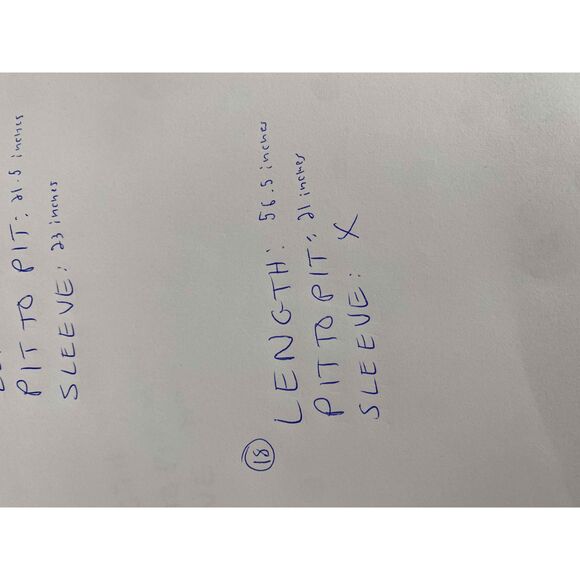 PIT TO PIT: 21.5 inches
SLEEVE: 23 inches
18
LENGTH: 56.5 inches
PIT TO PIT: 21 inches
SLEEVE: X